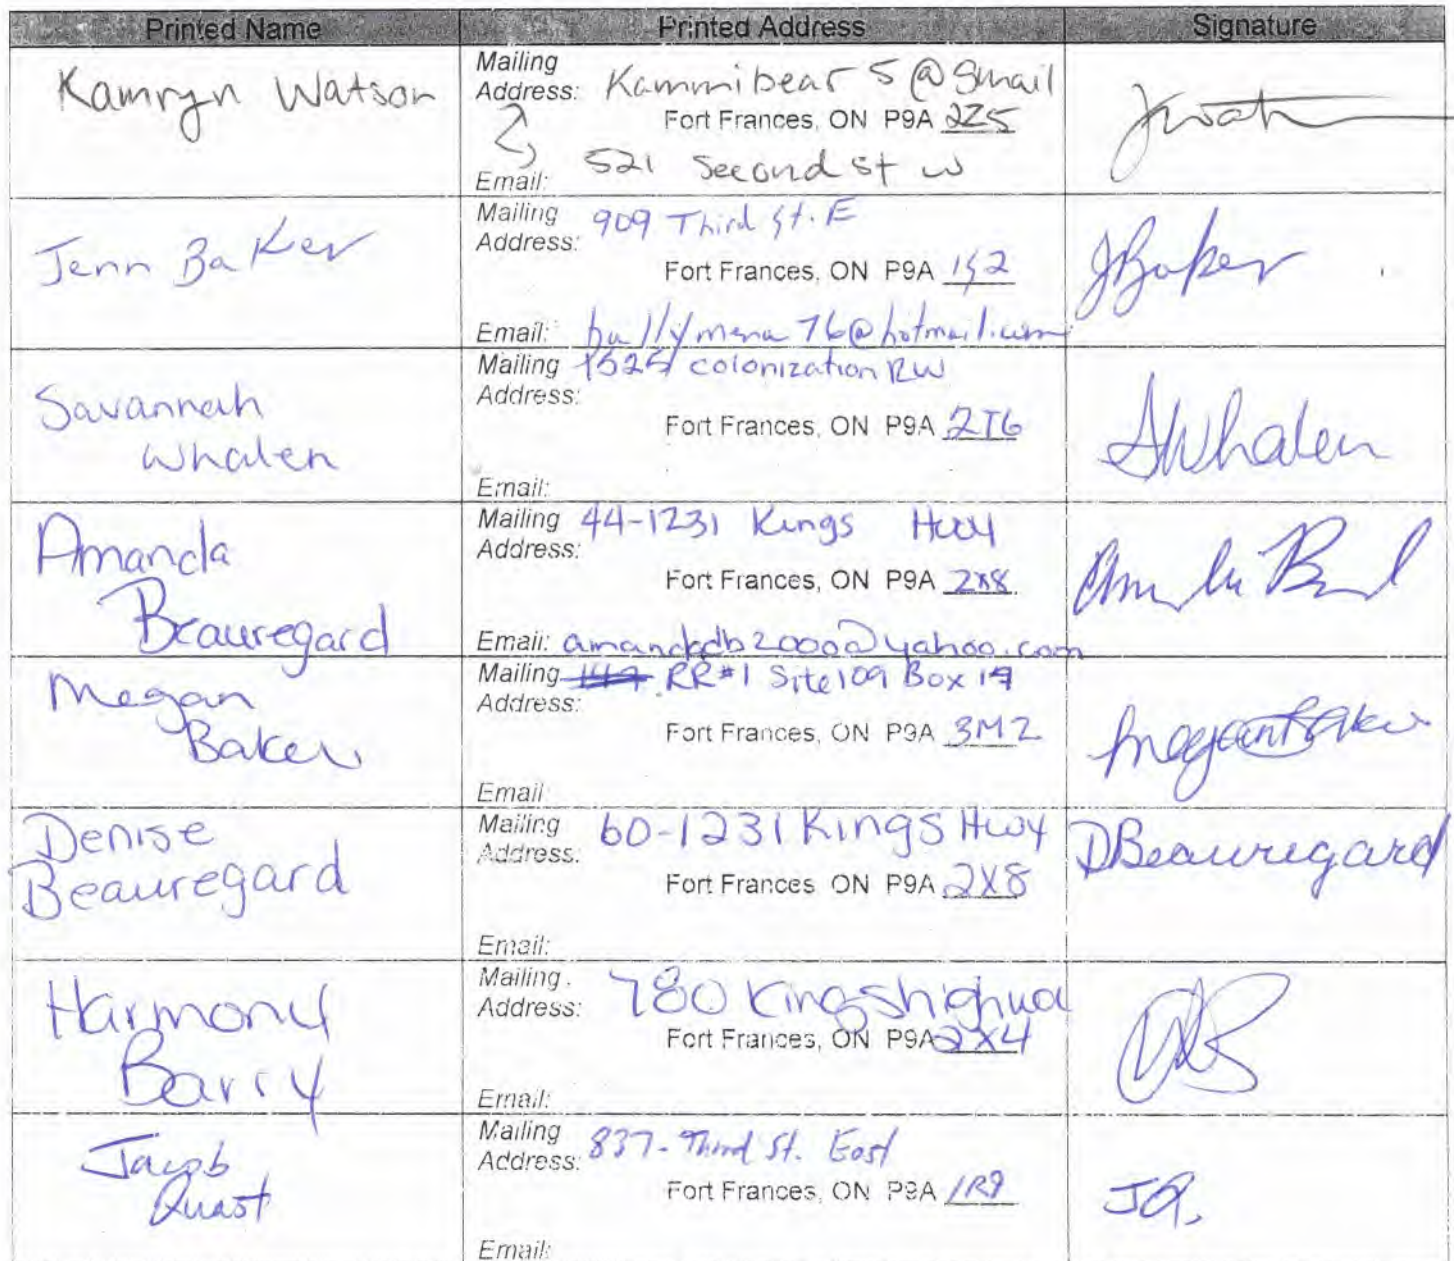 Printed Name Printed Address Signature
Kamryn Watson
Mailing
Address: Kammibear5@gmail
Fort Frances, ON P9A 2Z5
Email: 521 Second St W
Jenn Baker
Mailing
Address: 909 Third St. E
Fort Frances, ON P9A 1S2
JBaker
Email: ballymena76@hotmail.com
Savannah
Whalen
Mailing 1525 colonization RW
Address:
Fort Frances, ON P9A 2T6
SWhalen
Email:
Amanda
Beauregard
Mailing 44-1231 Kings Hwy
Address:
Fort Frances, ON P9A 2X8
Email: amandadb2000@yahoo.com
Megan
Baker
Mailing RR#1 Site 109 Box
Address:
Fort Frances, ON P9A 3M2
Email:
Denise
Beauregard
Mailing 60-1231 Kings Hwy
Address:
Fort Frances ON P9A 2X8
DBeauregard
Email:
Harmony
Barry
Mailing
Address: 780 Kingshighwa
Fort Frances, ON P9A 2X4
Email:
Jacob
Quast
Mailing
Address: 837- Third St. East
Fort Frances, ON P9A 1R9
JQ.
Email: